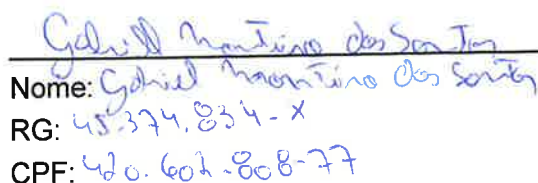 Gabriel Monteiro dos Santos
Nome: Gabriel Monteiro dos Santos
RG: 45.374.834-X
CPF: 420.602.808-77